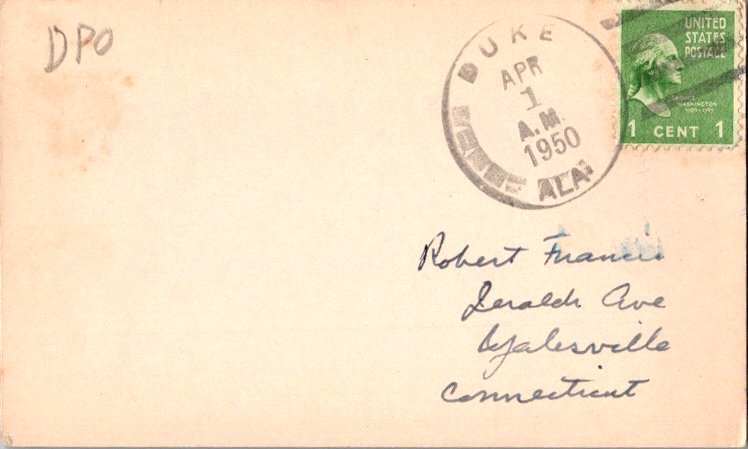 DPO
DUKE
APR
1
A.M.
1950
ALA.
UNITED
STATES
POSTAGE
GEORGE
WASHINGTON
1789-1797
1 CENT 1
Robert Francis
Geralds Ave
Yalesville
Connecticut